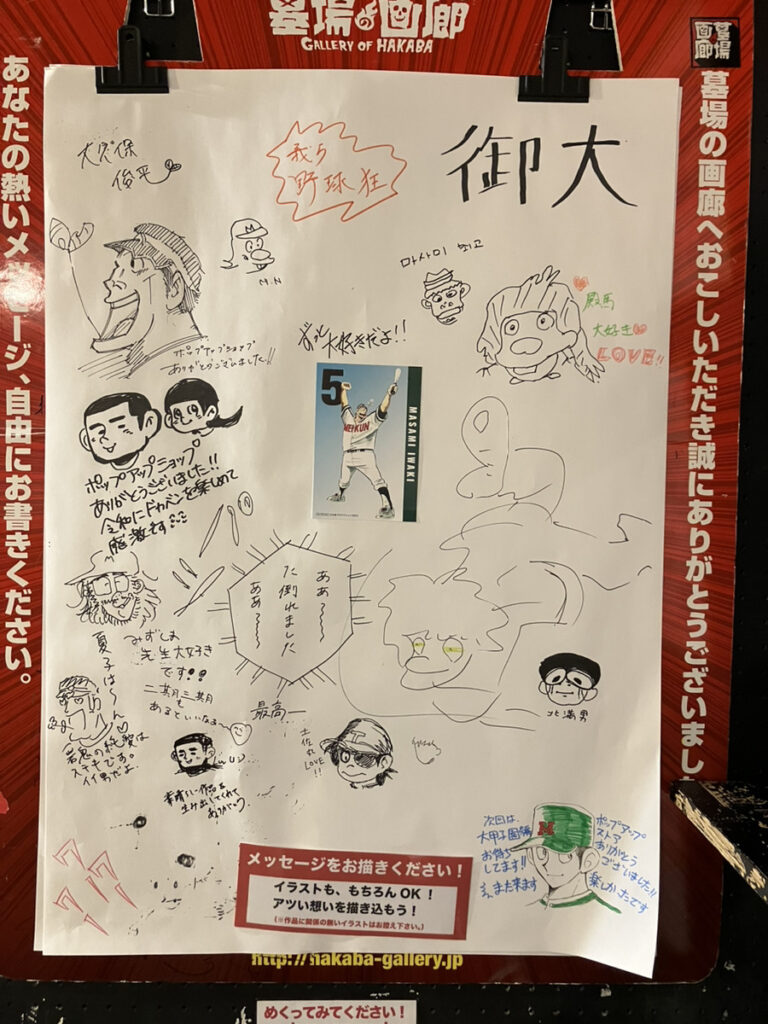 墓場の画廊
GALLERY OF HAKABA
墓場画廊
あなたの熱いメッセージ、自由にお書きください。
墓場の画廊へおこしいただき誠にありがとうございまし
大久保
俊平
我ら
野球狂
御大
M.N
マサミ
殿馬
大好き
LOVE!!
ポップアップショップ
ありがとうございました!!
ずっと大好きだよ!!
5
MEIKUN
MASAMI IWAKI
ポップアップショップ
ありがとうございました!!
令和にドカベンを楽しめて
感激です
ああ〜〜
た倒れました
ああ〜〜〜
みずしま
先生大好き
です!!
二期三期
も
あるといいなぁ〜
夏子は〜ん
若鬼の純愛は
ステキです。
イイ男だよ。
最高ー
土佐丸
LOVE
!!
北満男
素晴しい作品を
生み出してくれて
ありがとう
次回は、
大甲子園編
お待ち
してます!!
また来ます
M
ポップアップ
ストア
ありがとう
ございました!!
楽しかったです
メッセージをお描きください!
イラストも、もちろんOK!
アツい想いを描き込もう!
(※作品に関係の無いイラストはお控え下さい。)
http://hakaba-gallery.jp
めくってみてください!